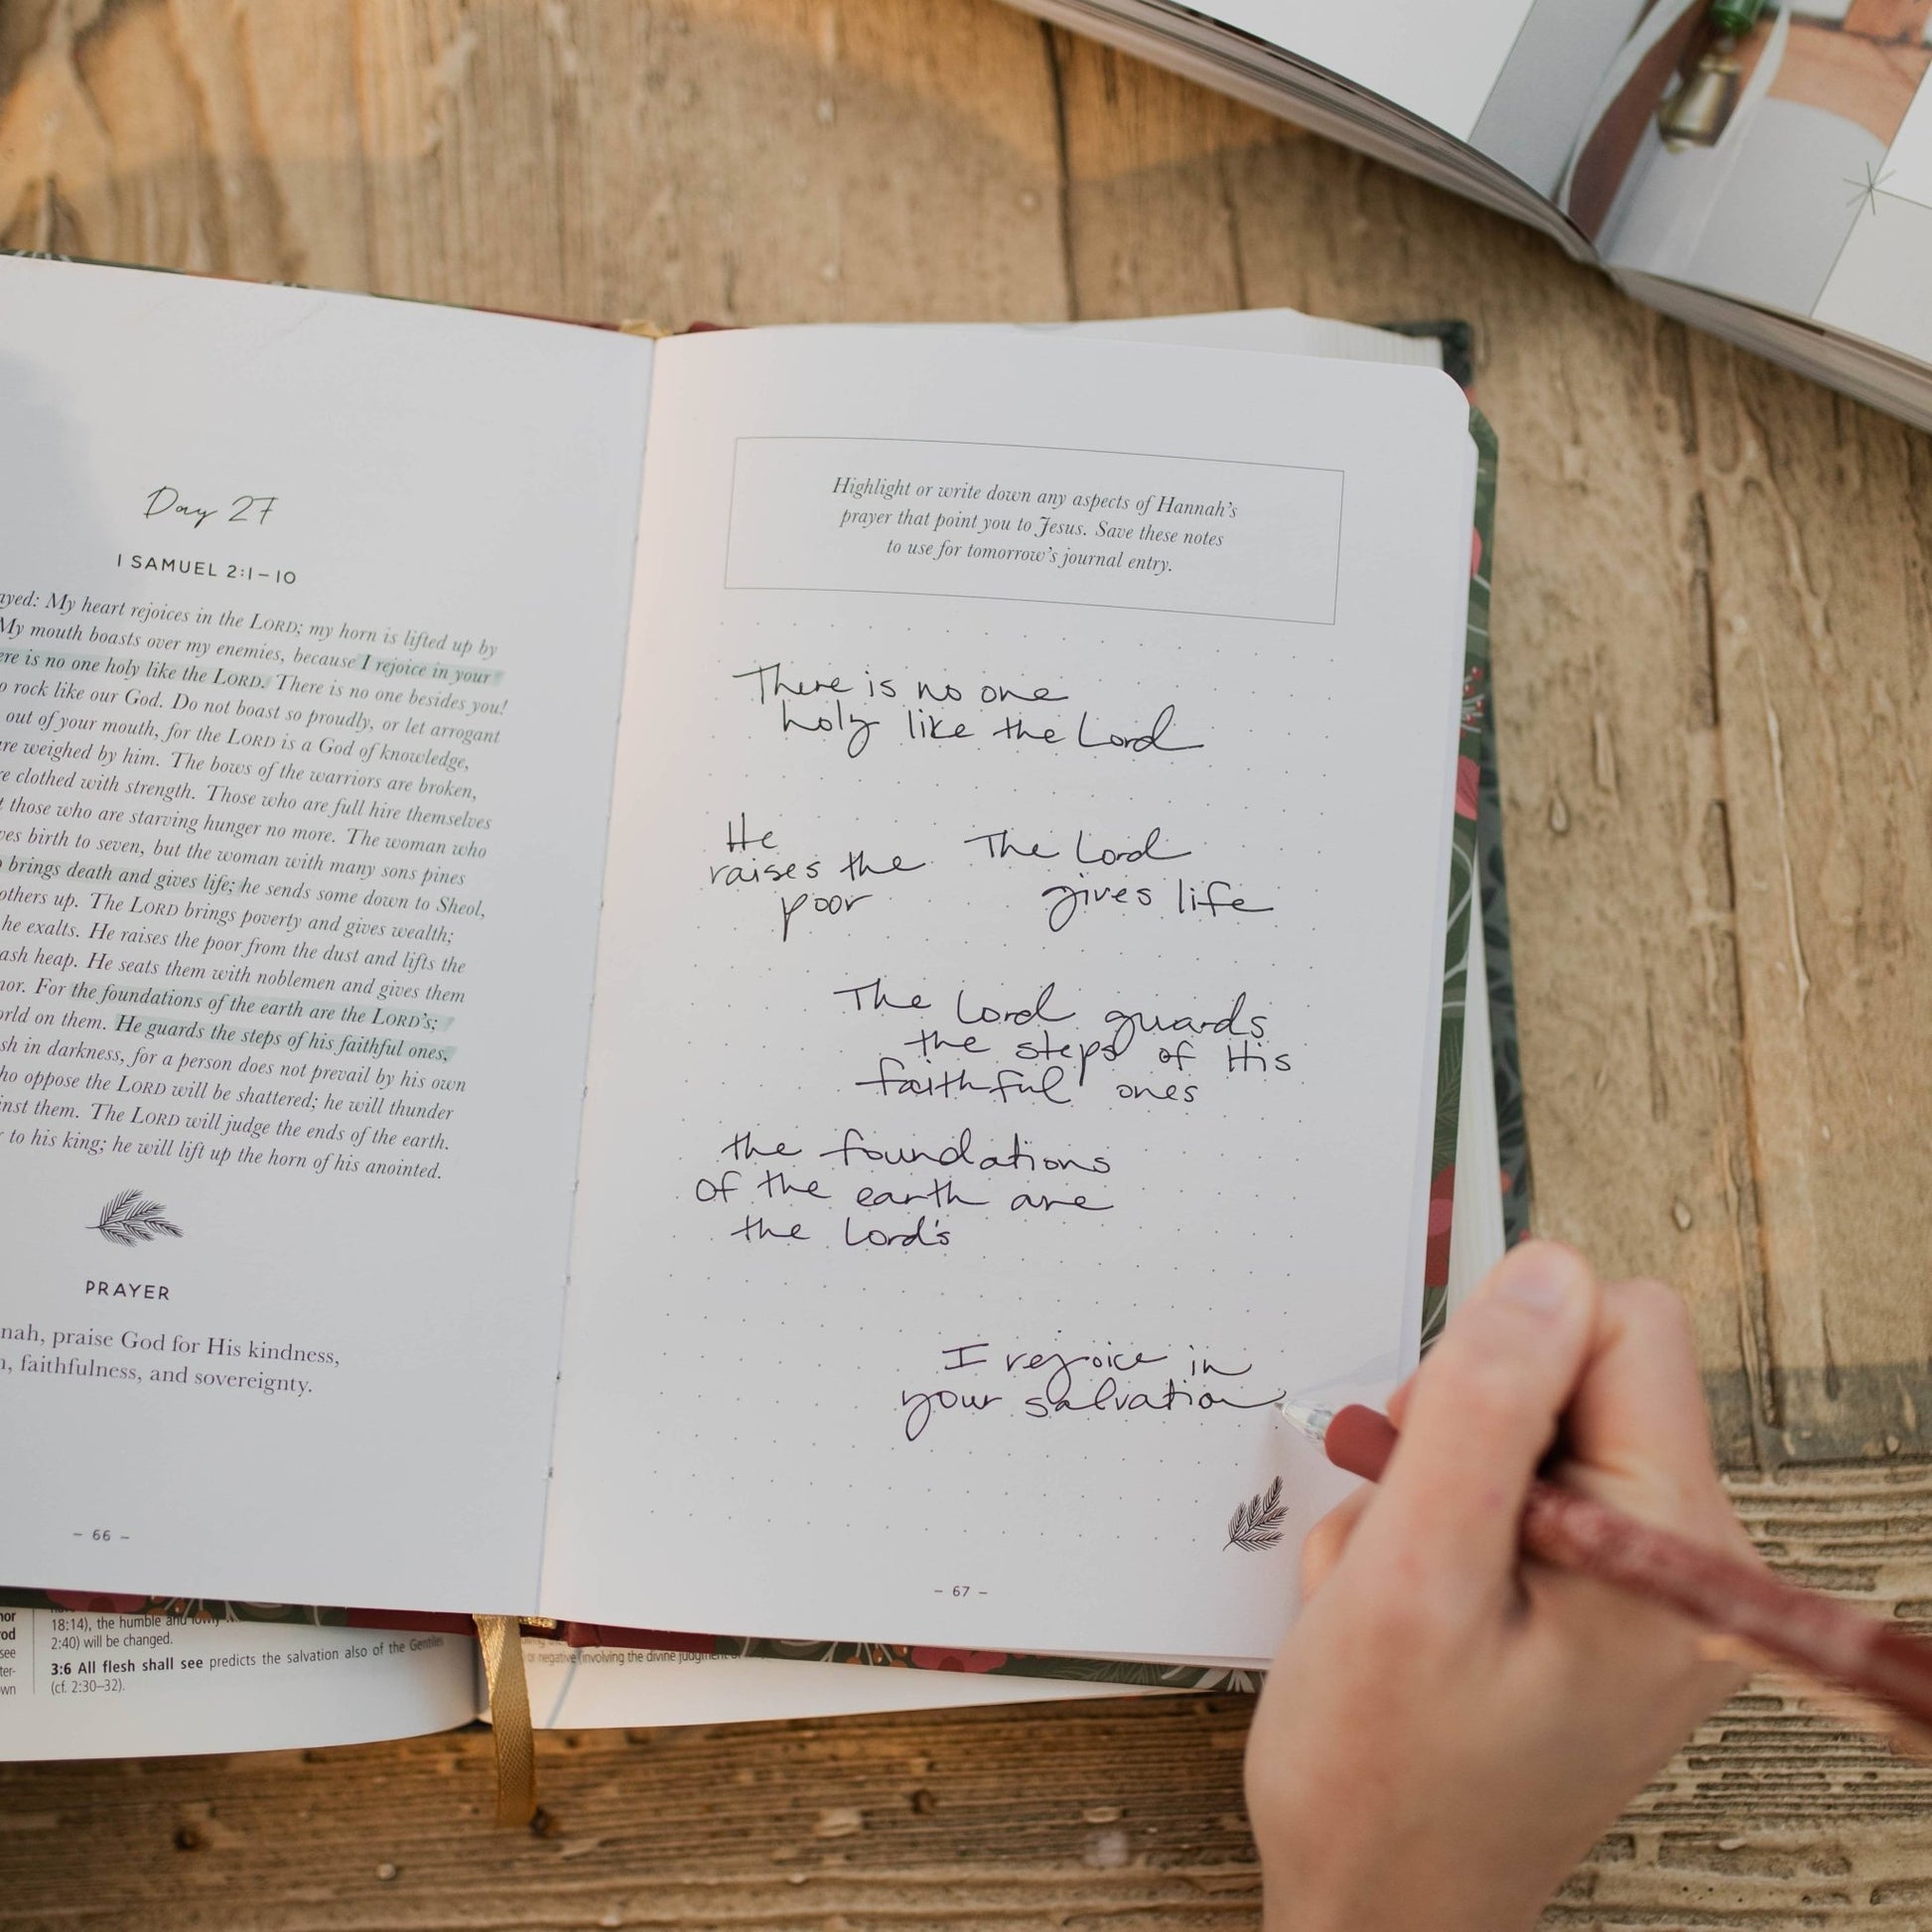 Day 27
1 SAMUEL 2:1–10
ayed: My heart rejoices in the LORD; my horn is lifted up by
My mouth boasts over my enemies, because I rejoice in your
ere is no one holy like the LORD. There is no one besides you!
o rock like our God. Do not boast so proudly, or let arrogant
out of your mouth, for the LORD is a God of knowledge,
re weighed by him. The bows of the warriors are broken,
e clothed with strength. Those who are full hire themselves
t those who are starving hunger no more. The woman who
ves birth to seven, but the woman with many sons pines
brings death and gives life; he sends some down to Sheol,
others up. The LORD brings poverty and gives wealth;
he exalts. He raises the poor from the dust and lifts the
ash heap. He seats them with noblemen and gives them
nor. For the foundations of the earth are the LORD's;
orld on them. He guards the steps of his faithful ones,
sh in darkness, for a person does not prevail by his own
ho oppose the LORD will be shattered; he will thunder
inst them. The LORD will judge the ends of the earth.
to his king; he will lift up the horn of his anointed.
PRAYER
nah, praise God for His kindness,
, faithfulness, and sovereignty.
– 66 –
Highlight or write down any aspects of Hannah's
prayer that point you to Jesus. Save these notes
to use for tomorrow's journal entry.
There is no one
holy like the Lord
He
raises the
poor
The Lord
gives life
The Lord guards
the steps of His
faithful ones
the foundations
of the earth are
the Lord's
I rejoice in
your salvation
– 67 –
18:14), the humble and
2:40) will be changed.
3:6 All flesh shall see predicts the salvation also of the Gentiles
(cf. 2:30–32).
negative (involving the divine